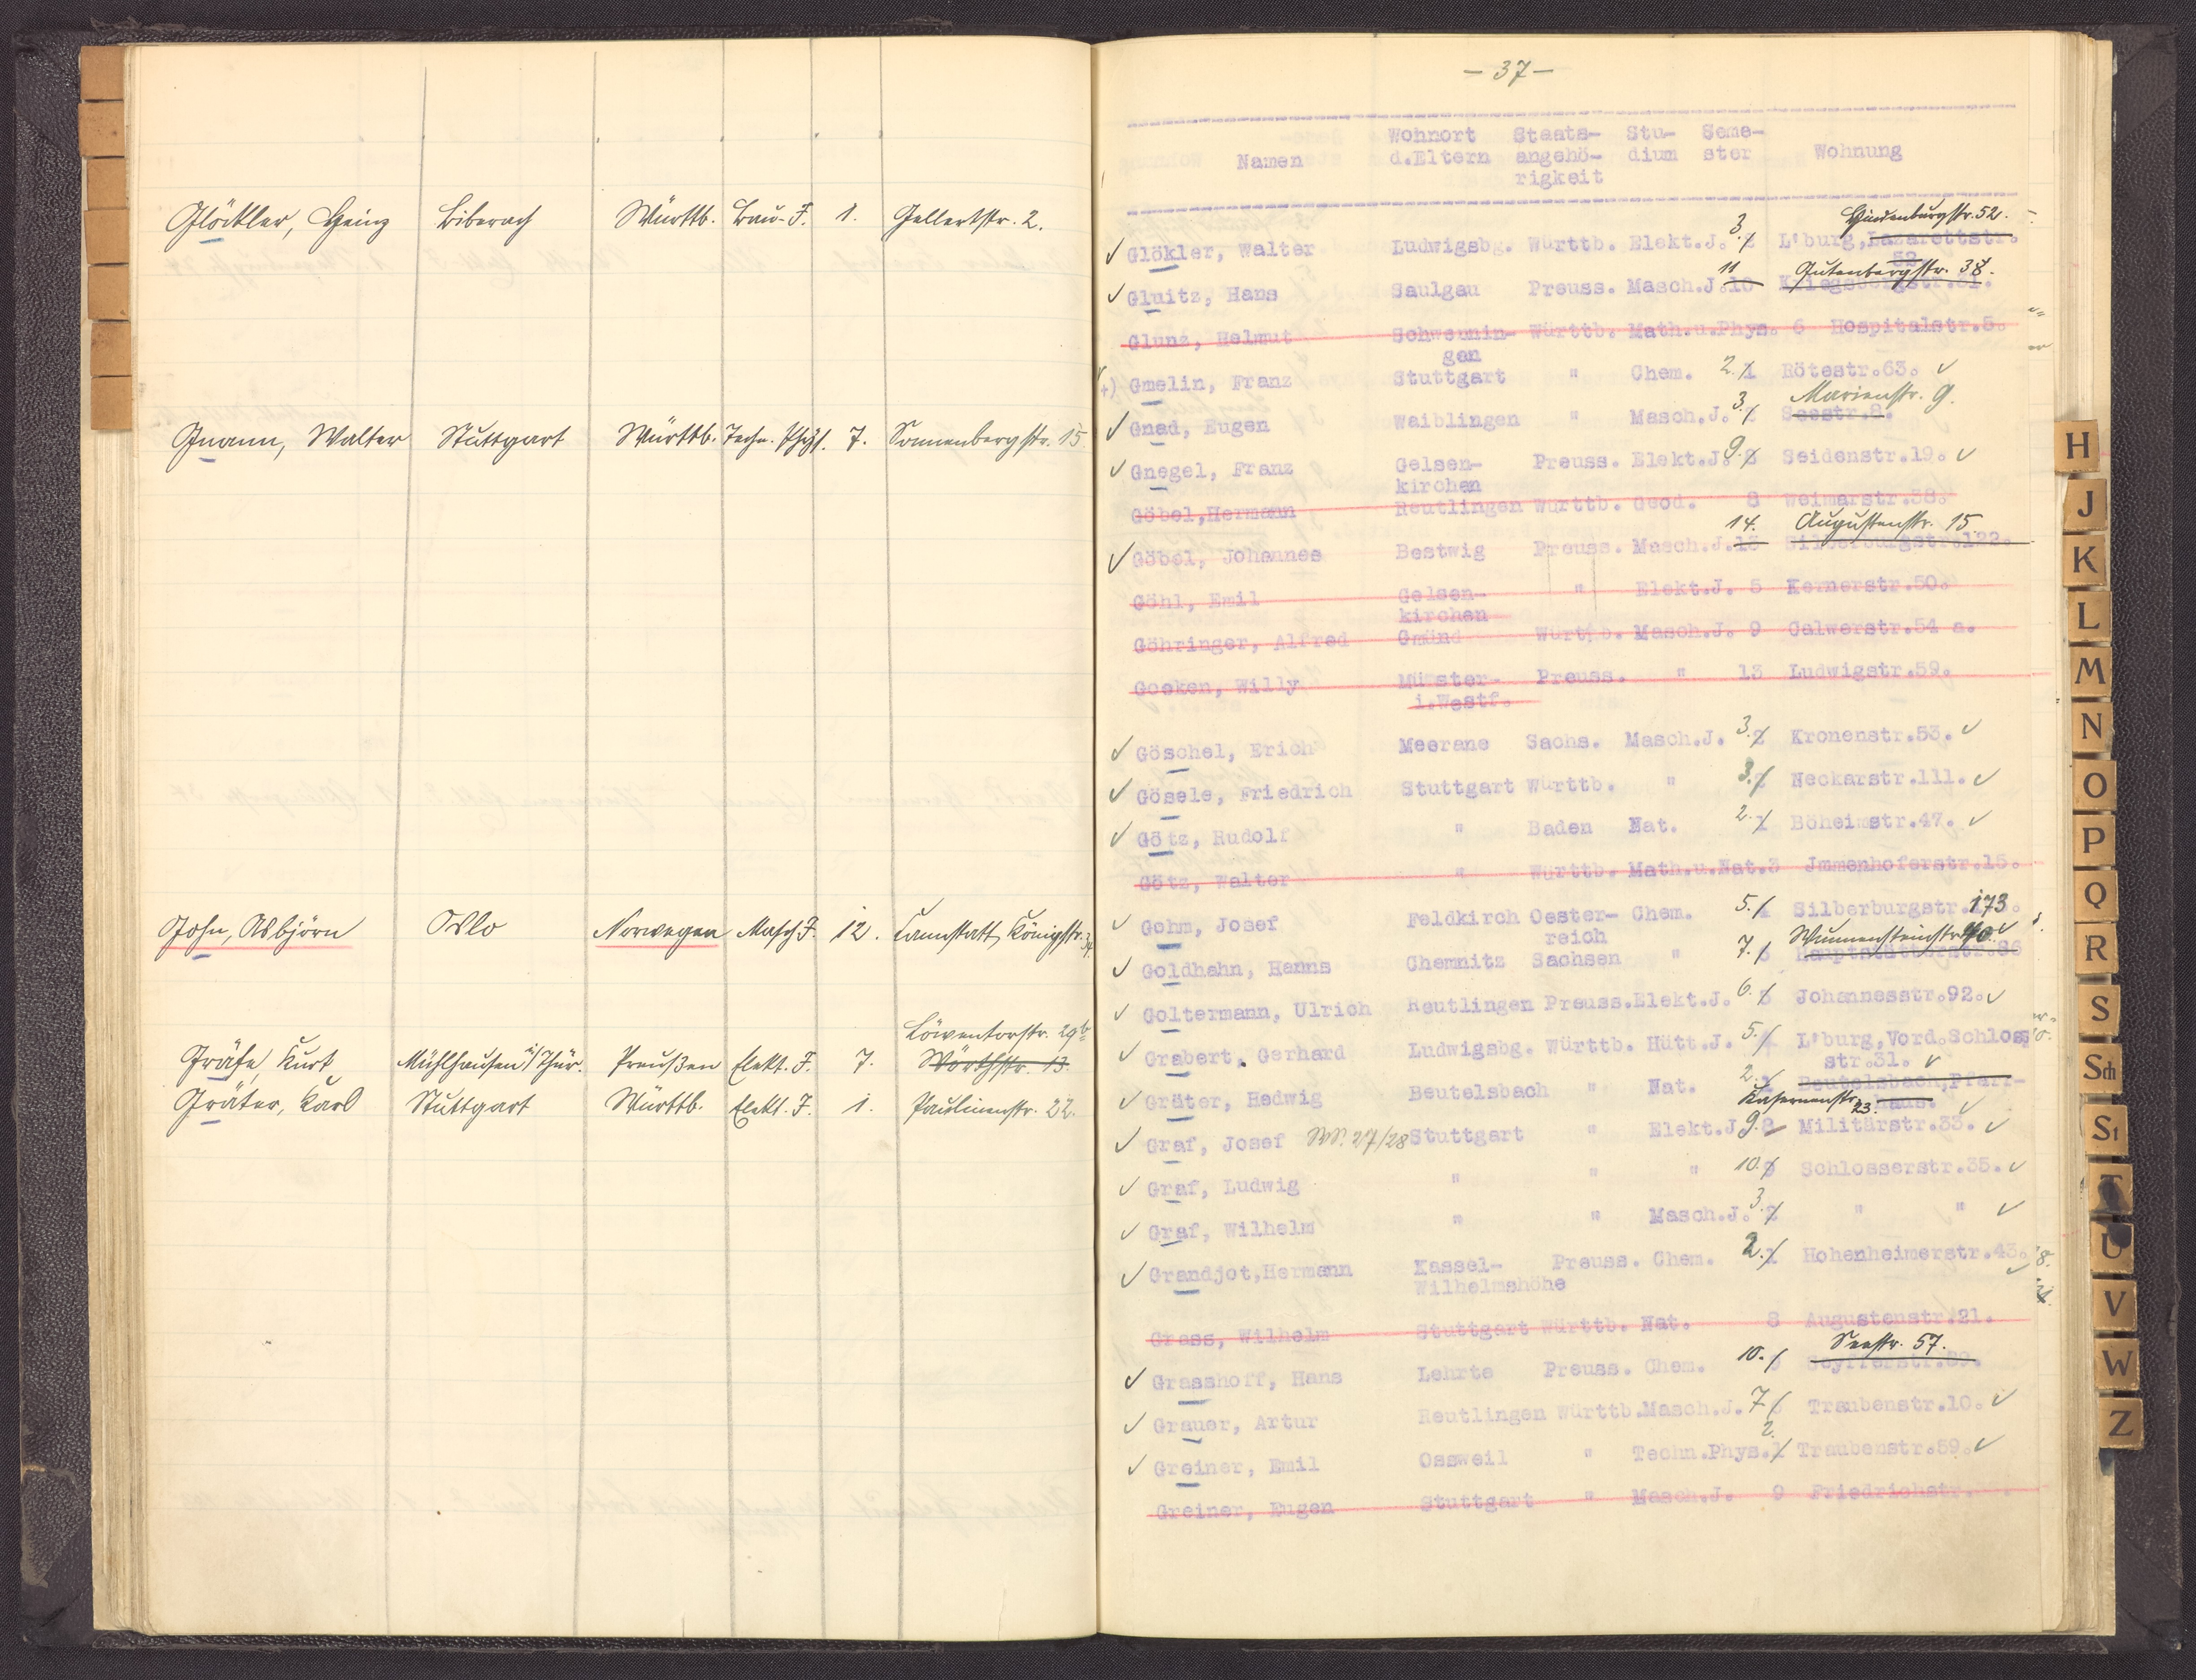 Glöckler, Heinz Biberach Württb. Bau-J. 1. Gellertstr. 2.
Gmann, Walter Stuttgart Württb. Techn. Phys. 7. Sonnenbergstr. 15.
Gohn, Asbjörn Oslo Norwegen Masch J. 12. Cannstatt, Königstr.
Löwentorstr. 29b
Gräfe, Kurt Mühlhausen i/Thür. Preußen Elekt. J. 7. Wörthstr. 13.
Gräter, Karl Stuttgart Württb. Elekt. J. 1. Paulinenstr. 22.
- 37 -
Wohnort Staats- Stu- Seme-
Namen d.Eltern angehö- dium ster Wohnung
rigkeit
Hindenburgstr. 52.
Glökler, Walter Ludwigsbg. Württb. Elekt.J. 3. 2 L'burg, Lazarettstr.
52
11 Gutenbergstr. 38.
Gluitz, Hans Saulgau Preuss. Masch.J. 10 Kriegsbergstr.31.
Glunz, Helmut Schwennin- Württb. Math.u.Phys. 6 Hospitalstr.5.
gen
Gmelin, Franz Stuttgart " Chem. 2. 1 Rötestr.63.
Marienstr. 9.
Gnad, Eugen Waiblingen " Masch.J. 3. 2 Seestr.8.
Gnegel, Franz Gelsen- Preuss. Elekt.J. 9. 8 Seidenstr.19.
kirchen
Göbel,Hermann Reutlingen Württb. Geod. 8 Weimarstr.38.
14. Augustenstr. 15.
Göbel, Johannes Bestwig Preuss. Masch.J. 13 Silberburgstr.122.
Göhl, Emil Gelsen- " Elekt.J. 5 Kernerstr.50.
kirchen
Göhringer, Alfred Gmünd Württb. Masch.J. 9 Calwerstr.54 a.
Goeken, Willy Münster- Preuss. " 13 Ludwigstr.59.
i.Westf.
Göschel, Erich Meerane Sachs. Masch.J. 3. 2 Kronenstr.53.
Gösele, Friedrich Stuttgart Württb. " 3. 2 Neckarstr.111.
Götz, Rudolf " Baden Nat. 2. 1 Böheimstr.47.
Götz, Walter " Württb. Math.u.Nat.3 Jmmenhoferstr.15.
Gohm, Josef Feldkirch Oester- Chem. 5. 4 Silberburgstr.173.
reich Wunnensteinstr. 40.
Goldhahn, Hanns Chemnitz Sachsen " 7. 6 Hauptstätterstr.86
Goltermann, Ulrich Reutlingen Preuss.Elekt.J. 6. 5 Johannesstr.92.
Grabert, Gerhard Ludwigsbg. Württb. Hütt.J. 5. 4 L'burg,Vord.Schloss
str.31.
Gräter, Hedwig Beutelsbach " Nat. 2. 1 Beutelsbach,Pfarr-
Kasernenstr. 23. haus.
Graf, Josef WS. 27/28 Stuttgart " Elekt.J. 9. 8 Militärstr.33.
Graf, Ludwig " " " 10. 9 Schlosserstr.35.
Graf, Wilhelm " " Masch.J. 3. 2 " "
Grandjot,Hermann Kassel- Preuss. Chem. 2. 1 Hohenheimerstr.43.
Wilhelmshöhe
Grass, Wilhelm Stuttgart Württb. Nat. 8 Augustenstr.21.
Seestr. 57.
Grasshoff, Hans Lehrte Preuss. Chem. 10. Seyfferstr.89.
Grauer, Artur Reutlingen Württb.Masch.J. 7 6 Traubenstr.10.
Greiner, Emil Ossweil " Techn.Phys. 2. 1 Traubenstr.59.
Greiner, Eugen Stuttgart " Masch.J. 9 Friedrichstr.
H
J
K
L
M
N
O
P
Q
R
S
Sch
St
T
U
V
W
Z